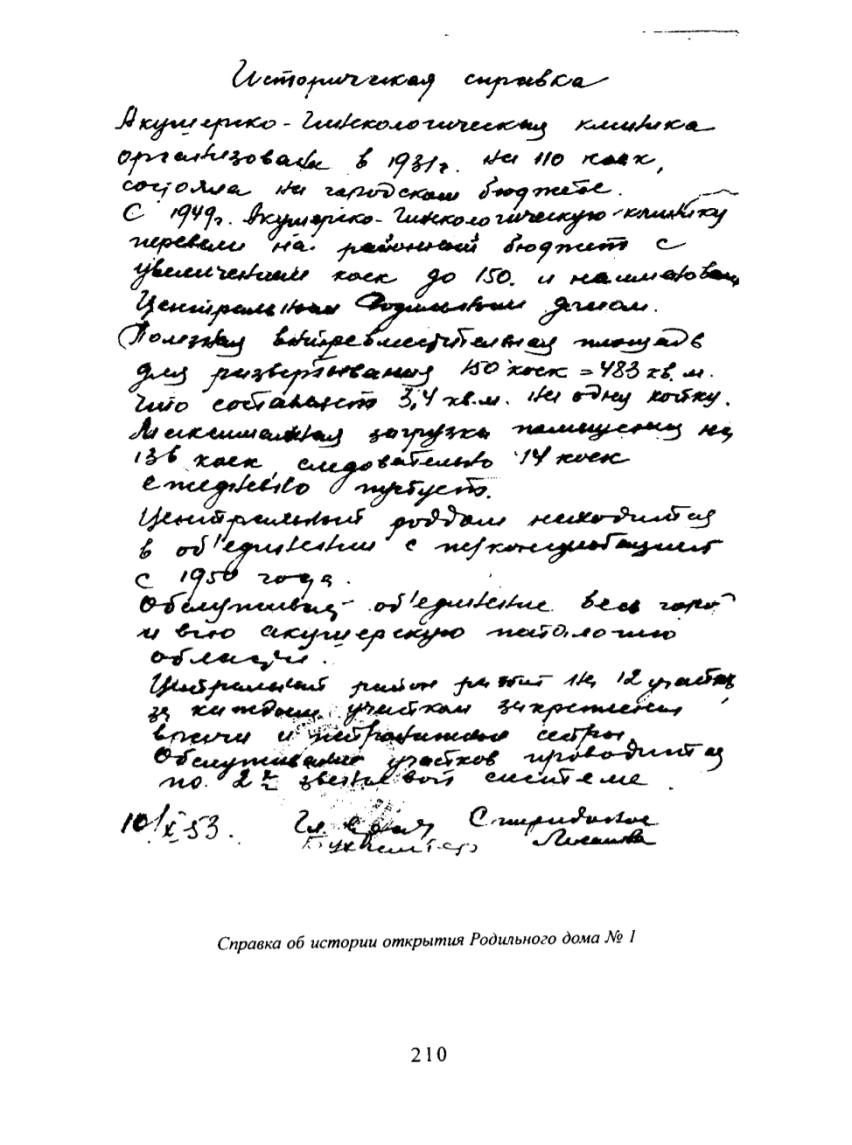 Историческая справка
Акушерско-Гинекологическая клиника
организована в 1931г. на 110 коек,
состояла на городском бюджете.
С 1949г. Акушерско-Гинекологическую клинику
перевели на районный бюджет с
увеличением коек до 150. и наименован
Центральным Родильным домом.
Полезная площадь
для развертывания 150 коек = 483 кв.м.
Что составляет 3,4 кв.м. на одну койку.
Максимальная загрузка на
136 коек, следовательно 14 коек
ежедневно пустуют.
Центральный роддом находится
в об'единении с
с 1950 года.
об'единение весь город
и всю акушерскую патологию
области.
Центральный район разбит на 12 участков
за каждым участком закреплены
врачи и патронажные сестры.
Обслуживание участков проводится
по 2х звеньевой системе
10/X 53. Гл. врач Спиридонов
Бухгалтер
Справка об истории открытия Родильного дома № 1
210